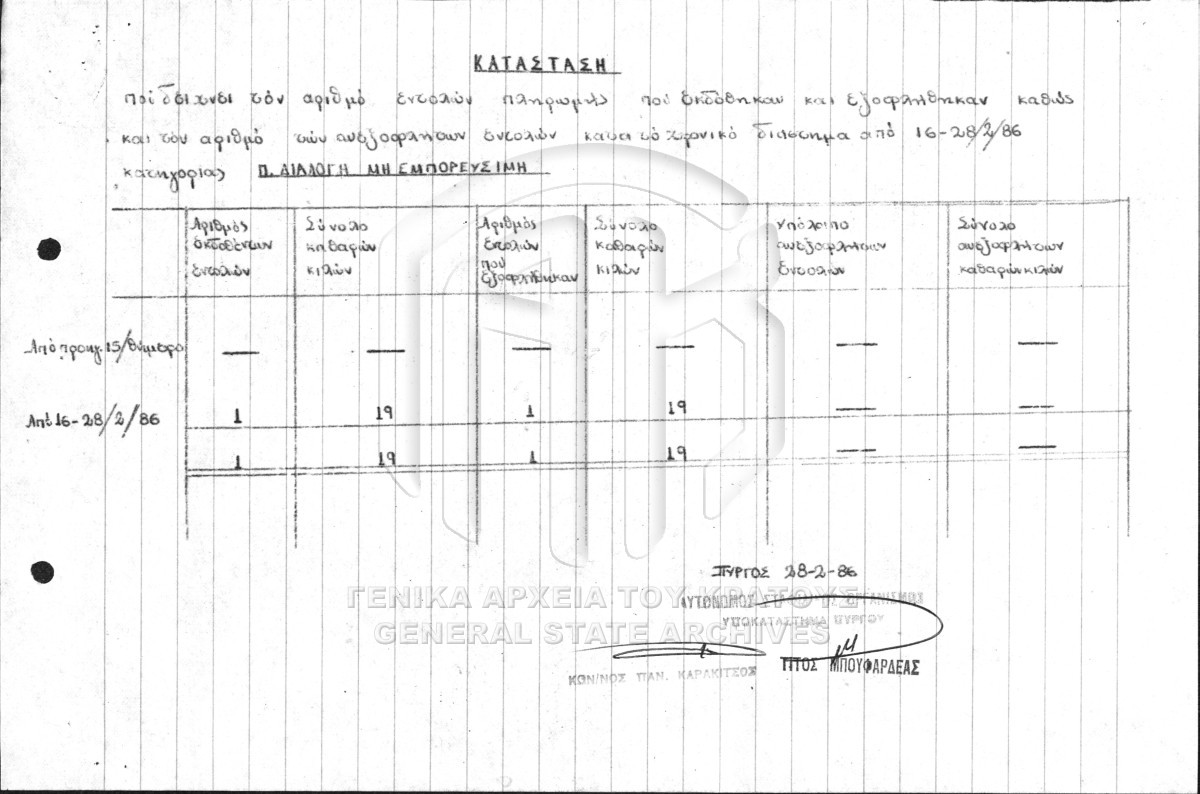 ΚΑΤΑΣΤΑΣΗ
πού δείχνει τόν αριθμό εντολών πληρωμής πού εκδόθηκαν και εξοφλήθηκαν καθώς
και τόν αριθμό τών ανεξοφλήτων εντολών κατά τό χρονικό διάστημα από 16-28/2/86
κατηγορίας Π. ΔΙΑΛΟΓΗ ΜΗ ΕΜΠΟΡΕΥΣΙΜΗ
Αριθμός εκδοθέντων εντολών
Σύνολο καθαρών κιλών
Αριθμός εντολών πού εξοφλήθηκαν
Σύνολο καθαρών κιλών
Υπόλοιπο ανεξοφλήτων εντολών
Σύνολο ανεξοφλήτων καθαρών κιλών
Από προηγ. 15/θύμερο — — — — — —
Από 16-28/2/86 1 19 1 19 — —
1 19 1 19 — —
ΠΥΡΓΟΣ 28-2-86
ΓΕΝΙΚΑ ΑΡΧΕΙΑ ΤΟΥ ΚΡΑΤΟΥΣ
ΑΥΤΟΝΟΜΟΣ ΟΡΓΑΝΙΣΜΟΣ
ΥΠΟΚΑΤΑΣΤΗΜΑ ΠΥΡΓΟΥ
GENERAL STATE ARCHIVES
ΤΙΤΟΣ ΜΠΟΥΦΑΡΔΕΑΣ
ΚΩΝ/ΝΟΣ ΠΑΝ. ΚΑΡΑΚΙΤΣΟΣ